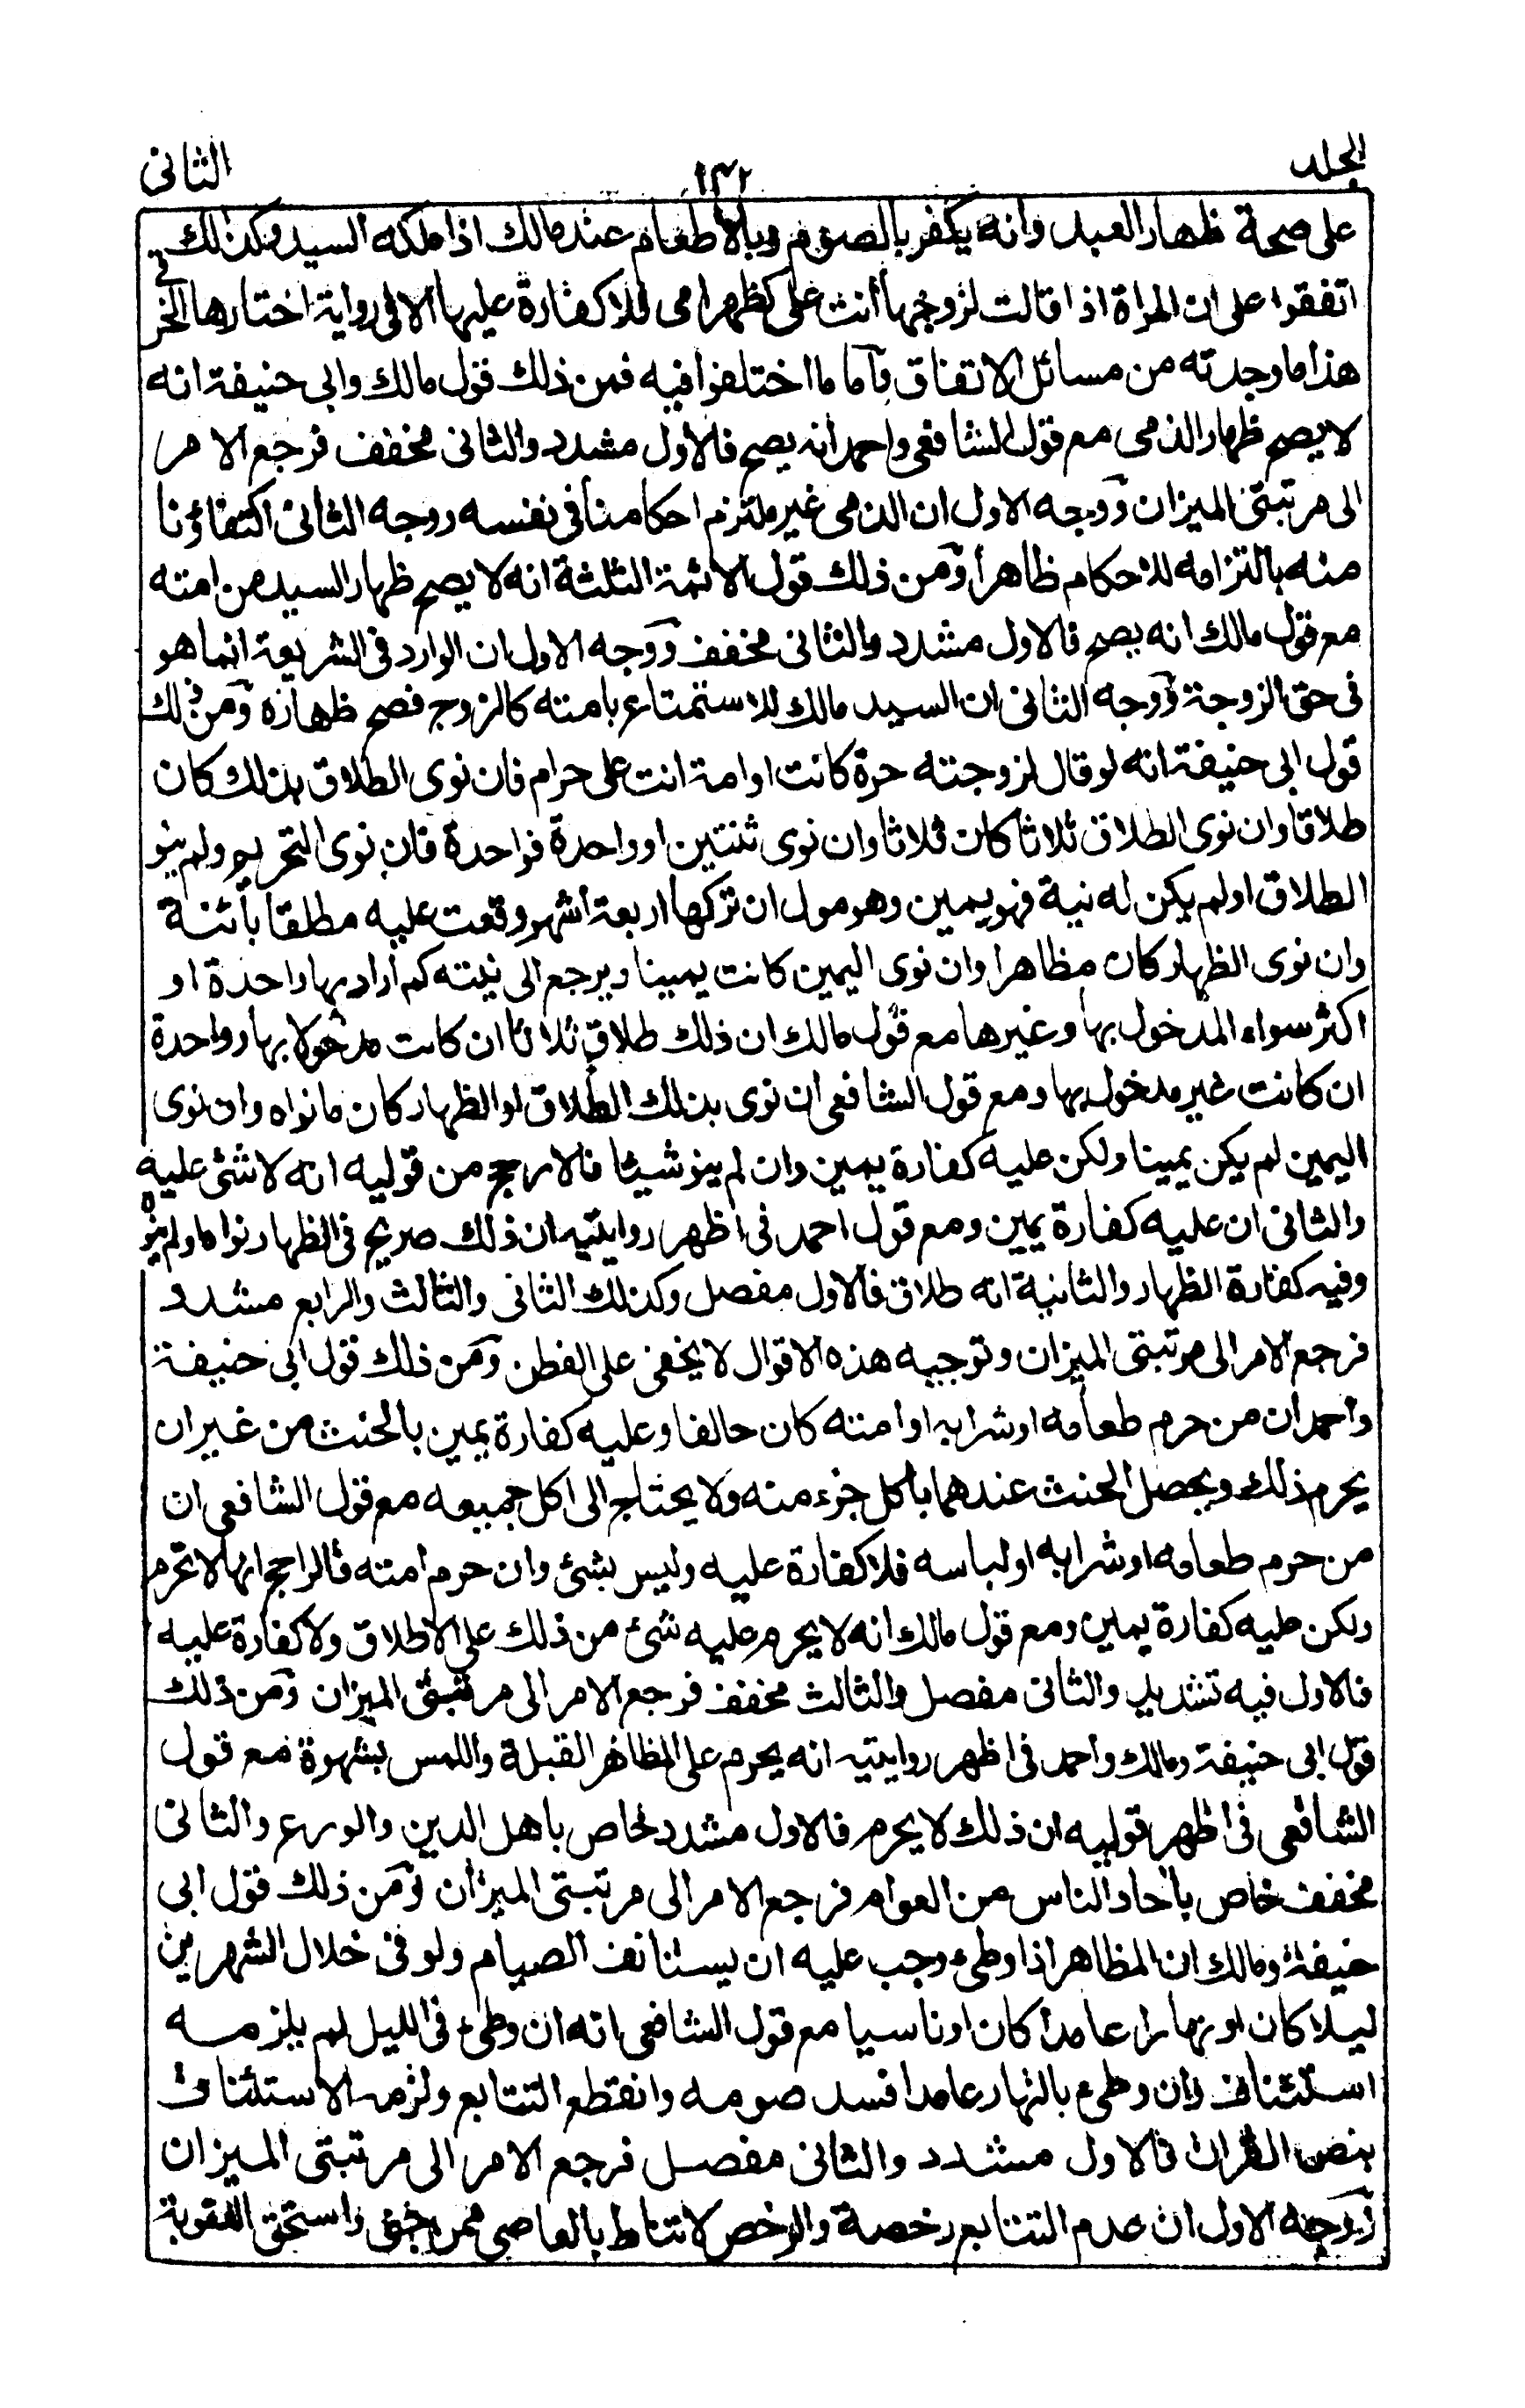 الجلد
١٣٢
الثانى
على صحة ظهار العبد وانه يكفر بالصوم وبالاطعام عند مالك اذا ملكه السيد وكذلك
اتفقوا على ان المراة اذا قالت لزوجها أنت على كظهر امى فلا كفارة عليها الا فى رواية اختارها الخرقى
هذا ما وجدته من مسائل الاتفاق وأما ما اختلفوا فيه فمن ذلك قول مالك وابى حنيفة انه
لا يصح ظهار الذمى مع قول الشافعى واحمد انه يصح فالاول مشدد والثانى مخفف فرجع الامر
الى مرتبتى الميزان ووجه الاول ان الذمى غير ملتزم احكامنا فى نفسه ووجه الثانى اكتفاؤنا
منه بالتزامه للاحكام ظاهرا ومن ذلك قول الائمة الثلثة انه لا يصح ظهار السيد من امته
مع قول مالك انه يصح فالاول مشدد والثانى مخفف ووجه الاول ان الوارد فى الشريعة انما هو
فى حق الزوجة ووجه الثانى ان السيد مالك للاستمتاع بامته كالزوج فصح ظهاره ومن ذلك
قول ابى حنيفة انه لو قال لزوجته حرة كانت او امة انت على حرام فان نوى الطلاق بذلك كان
طلاقا وان نوى الطلاق ثلاثا كان ثلاثا وان نوى ثنتين او واحدة فواحدة فان نوى التحريم ولم ينو
الطلاق او لم يكن له نية فهو يمين وهو مول ان تركها اربعة أشهر وقعت عليه مطلقا بائنة
وان نوى الظهار كان مظاهرا وان نوى اليمين كانت يمينا ويرجع الى نيته كم أراد بها واحدة او
اكثر سواء المدخول بها وغيرها مع قول مالك ان ذلك طلاق ثلاثا ان كانت مدخولا بها وواحدة
ان كانت غير مدخول بها ومع قول الشافعى ان نوى بذلك الطلاق او الظهار كان ما نواه وان نوى
اليمين لم يكن يمينا ولكن عليه كفارة يمين وان لم ينو شيئا فالارجح من قوليه انه لا شئ عليه
والثانى ان عليه كفارة يمين ومع قول احمد فى اظهر روايتيه ان ذلك صريح فى الظهار نواه او لم ينوه
وفيه كفارة الظهار والثانية انه طلاق فالاول مفصل وكذلك الثانى والثالث والرابع مشدد
فرجع الامر الى مرتبتى الميزان وتوجيه هذه الاقوال لا يخفى على الفطن ومن ذلك قول ابى حنيفة
واحمد ان من حرم طعامه او شرابه او امته كان حالفا وعليه كفارة يمين بالحنث من غير ان
يحرم ذلك ويحصل الحنث عندهما باكل جزء منه ولا يحتاج الى اكل جميعه مع قول الشافعى ان
من حرم طعامه او شرابه او لباسه فلا كفارة عليه وليس بشئ وان حرم امته فالراجح انها لا تحرم
ولكن عليه كفارة يمين ومع قول مالك انه لا يحرم عليه شئ من ذلك على الاطلاق ولا كفارة عليه
فالاول فيه تشديد والثانى مفصل والثالث مخفف فرجع الامر الى مرتبتى الميزان ومن ذلك
قول ابى حنيفة ومالك واحمد فى اظهر روايتيه انه يحرم على المظاهر القبلة واللمس بشهوة مع قول
الشافعى فى اظهر قوليه ان ذلك لا يحرم فالاول مشدد خاص باهل الدين والورع والثانى
مخفف خاص بآحاد الناس من العوام فرجع الامر الى مرتبتى الميزان ومن ذلك قول ابى
حنيفة ومالك ان المظاهر اذا وطئ وجب عليه ان يستانف الصيام ولو فى خلال الشهرين
ليلا كان او نهارا عامدا كان او ناسيا مع قول الشافعى انه ان وطئ فى الليل لم يلزمه
استئناف وان وطئ بالنهار عامدا فسد صومه وانقطع التتابع ولزمه الاستئناف
بنص القران فالاول مشدد والثانى مفصل فرجع الامر الى مرتبتى الميزان
ووجه الاول ان عدم التتابع رخصة والرخص لا تناط بالعاصى واستحق العقوبة